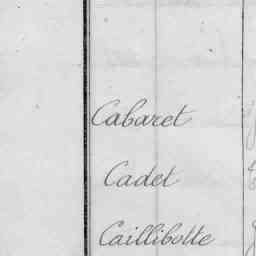 Cabaret
Cadet
Caillibotte